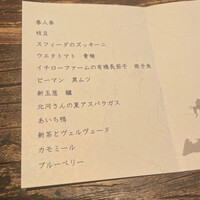 春人参
枝豆
スフィーダのズッキーニ
ウエダトマト　青柚
イチローファームの有機長茄子　擬子魚
ピーマン　黒ムツ
新玉葱　鱧
北河さんの夏アスパラガス
あいち鴨
新茶とヴェルヴェーヌ
カモミール
ブルーベリー